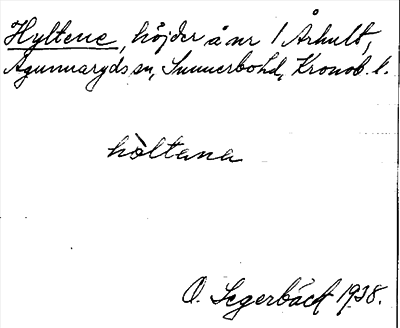 Hyltene, höjder å nr 1 Århult,
Agunnaryds sn, Sunnerbo hd, Kronob. l.
hòltana
O. Segerbäck 1938.